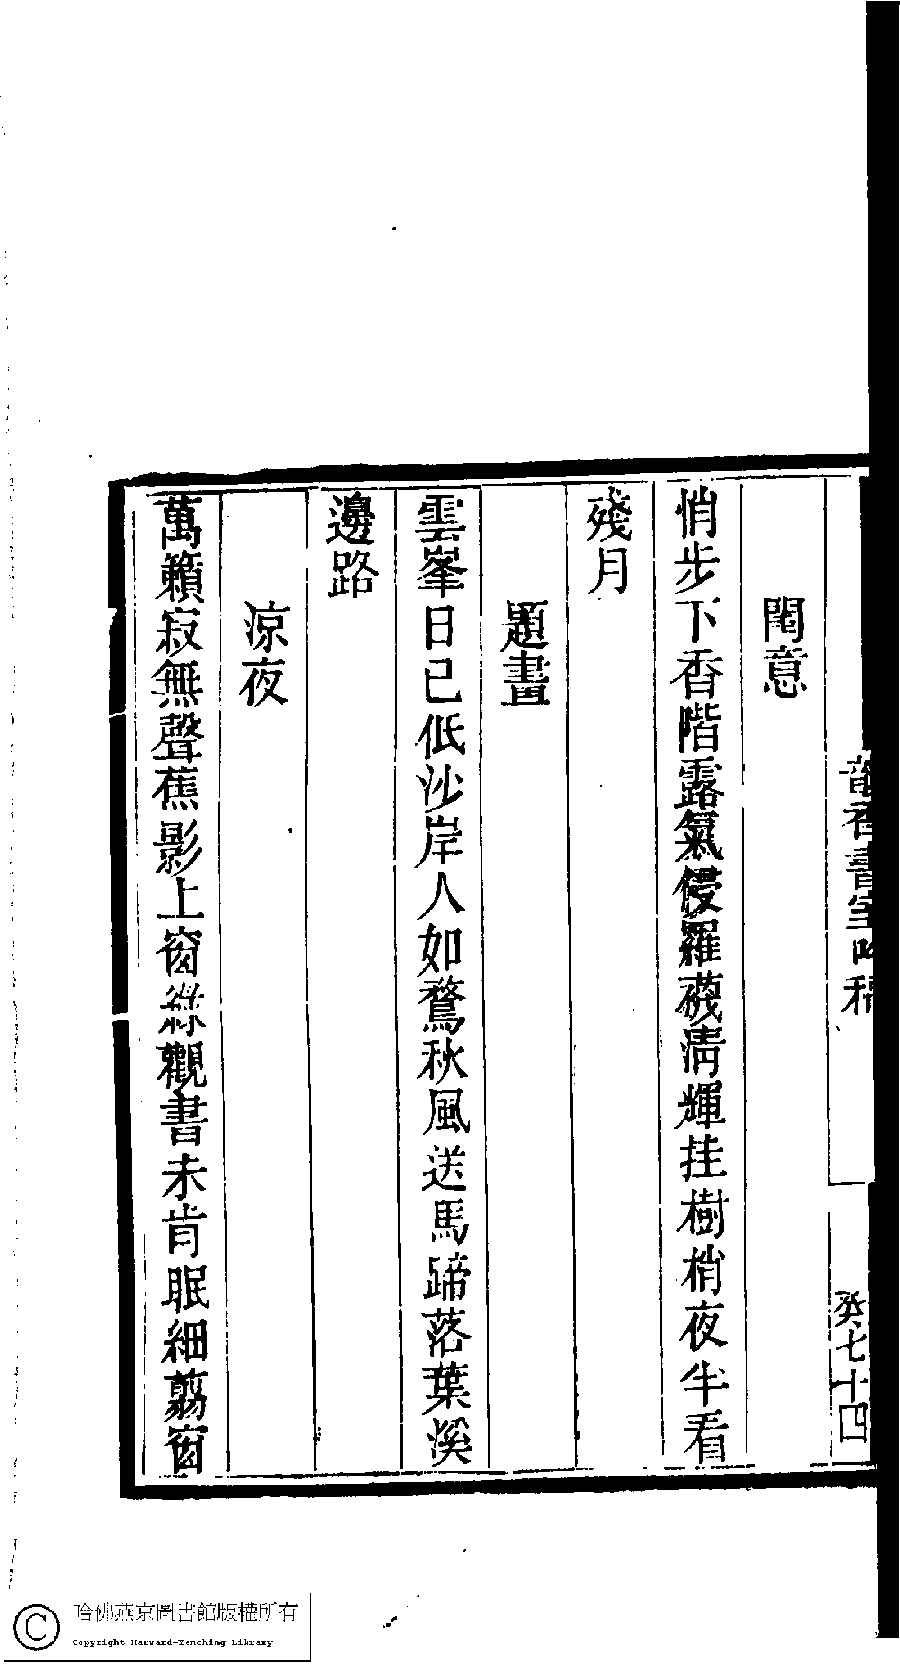 香書室吟稿
癸七十四
閨意
悄步下香階露氣侵羅襪清輝挂樹梢夜半看
殘月
題畫
雲峯日已低沙岸人如鶩秋風送馬蹄落葉溪
邊路
涼夜
萬籟寂無聲蕉影上窗綠觀書未肯眠細翦窗
哈佛燕京圖書館版權所有
Copyright Harvard-Yenching Library